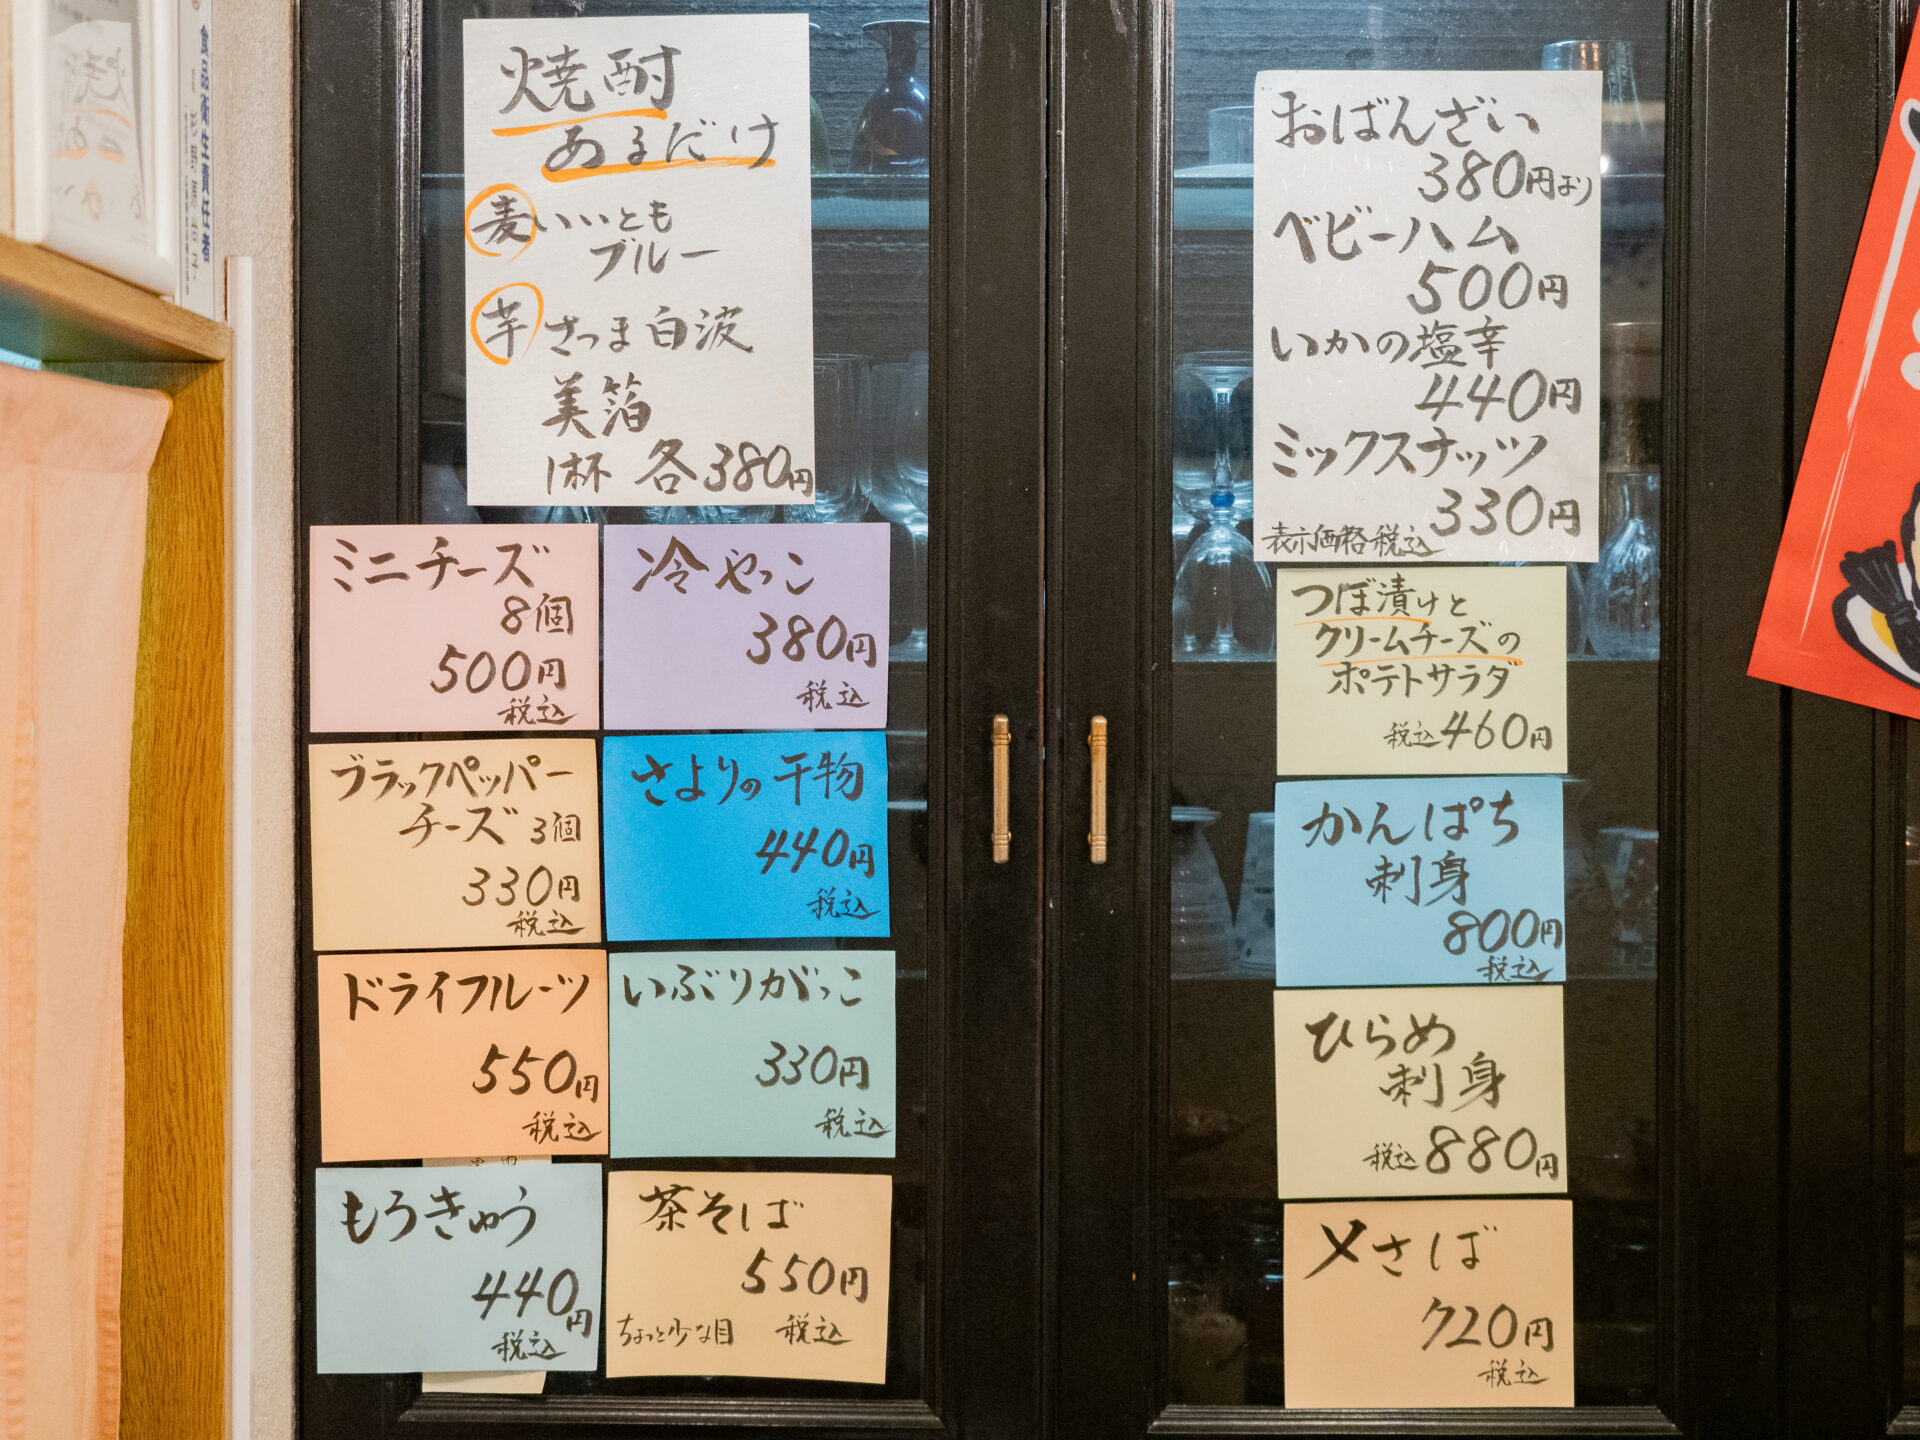 食品衛生責任者
焼酎
あるだけ
麦いいとも
ブルー
芋さつま白波
美箔
1杯 各380円
おばんざい
380円より
ベビーハム
500円
いかの塩辛
440円
ミックスナッツ
330円
表示価格税込
ミニチーズ
8個
500円
税込
冷やっこ
380円
税込
ブラックペッパー
チーズ 3個
330円
税込
さよりの干物
440円
税込
ドライフルーツ
550円
税込
いぶりがっこ
330円
税込
もろきゅう
440円
税込
茶そば
550円
ちょっと少な目 税込
つぼ漬けと
クリームチーズの
ポテトサラダ
税込460円
かんぱち
刺身
800円
税込
ひらめ
刺身
税込880円
〆さば
720円
税込